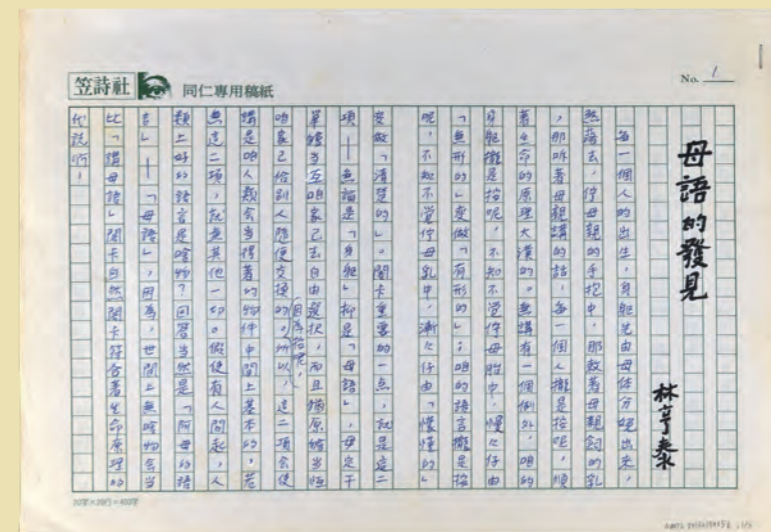 笠詩社 同仁專用稿紙
No. 1
母語的發見
林亨泰
每一個人的出生，身軀先由母体分娩出來，
煞落去，佇母親的手抱中，那欶著母親飼的乳
，那听著母親講的話，每一個人攏是按呢，順
著生命的原理大漢的。無講有一個例外，咱的
身軀攏是按呢，不知不覺佇母胎中，慢々仔由
「無形的」变做「有形的」；咱的語言攏是按
呢，不知不覺佇母乳中，漸々仔由「懞懂的」
变做「清楚的」。閣卡重要的一点，就是這二
項——無論是「身軀」抑是「母語」，毋是干
單 当互咱家己去自由選択，而且猶原 当
咱家己佮別人隨便交換的。所以，這二項会使
講是咱人類会当得著的物件中間上基本的，若
無這二項，就無其他一切。假使有人問起，人
類上好的語言是啥物？回答当然是「阿母的語
言」——「母語」，因為，世間上無啥物会当
比「講母語」閣卡自然閣卡符合著生命原理的
代誌啊！
20字×20行=400字